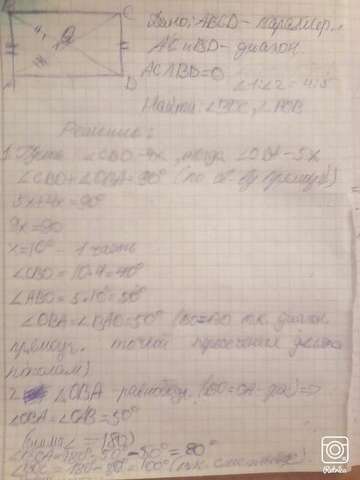 B C
Дано: ABCD - параллер..
AC и BD - диагон.
AC∩BD=O
∠1:∠2 = 4:5
A D
Найти ∠BOC, ∠AOB
Решение:
1. Пусть ∠CBO-4x, тогда ∠OBA-5x
∠CBO+∠OBA=90° (по св-ву прямоуг)
5x+4x=90°
9x=90
x=10° - 1 часть
∠OBO = 10·4=40°
∠ABO=5·10°=50°
∠OBA=∠BAO=50° (BO=AO т.к. диагон.
прямоуг. точкой пересечения делятся
пополам)
2. ∠OBA равнобедр. (BO=OA-док)=>
∠OBA=∠OAB=50°
(сумма ∠=180)
∠BOA=180°-50°-50°=80°
∠BOC=180-80°=100° (т.к. смежные)
Retrica